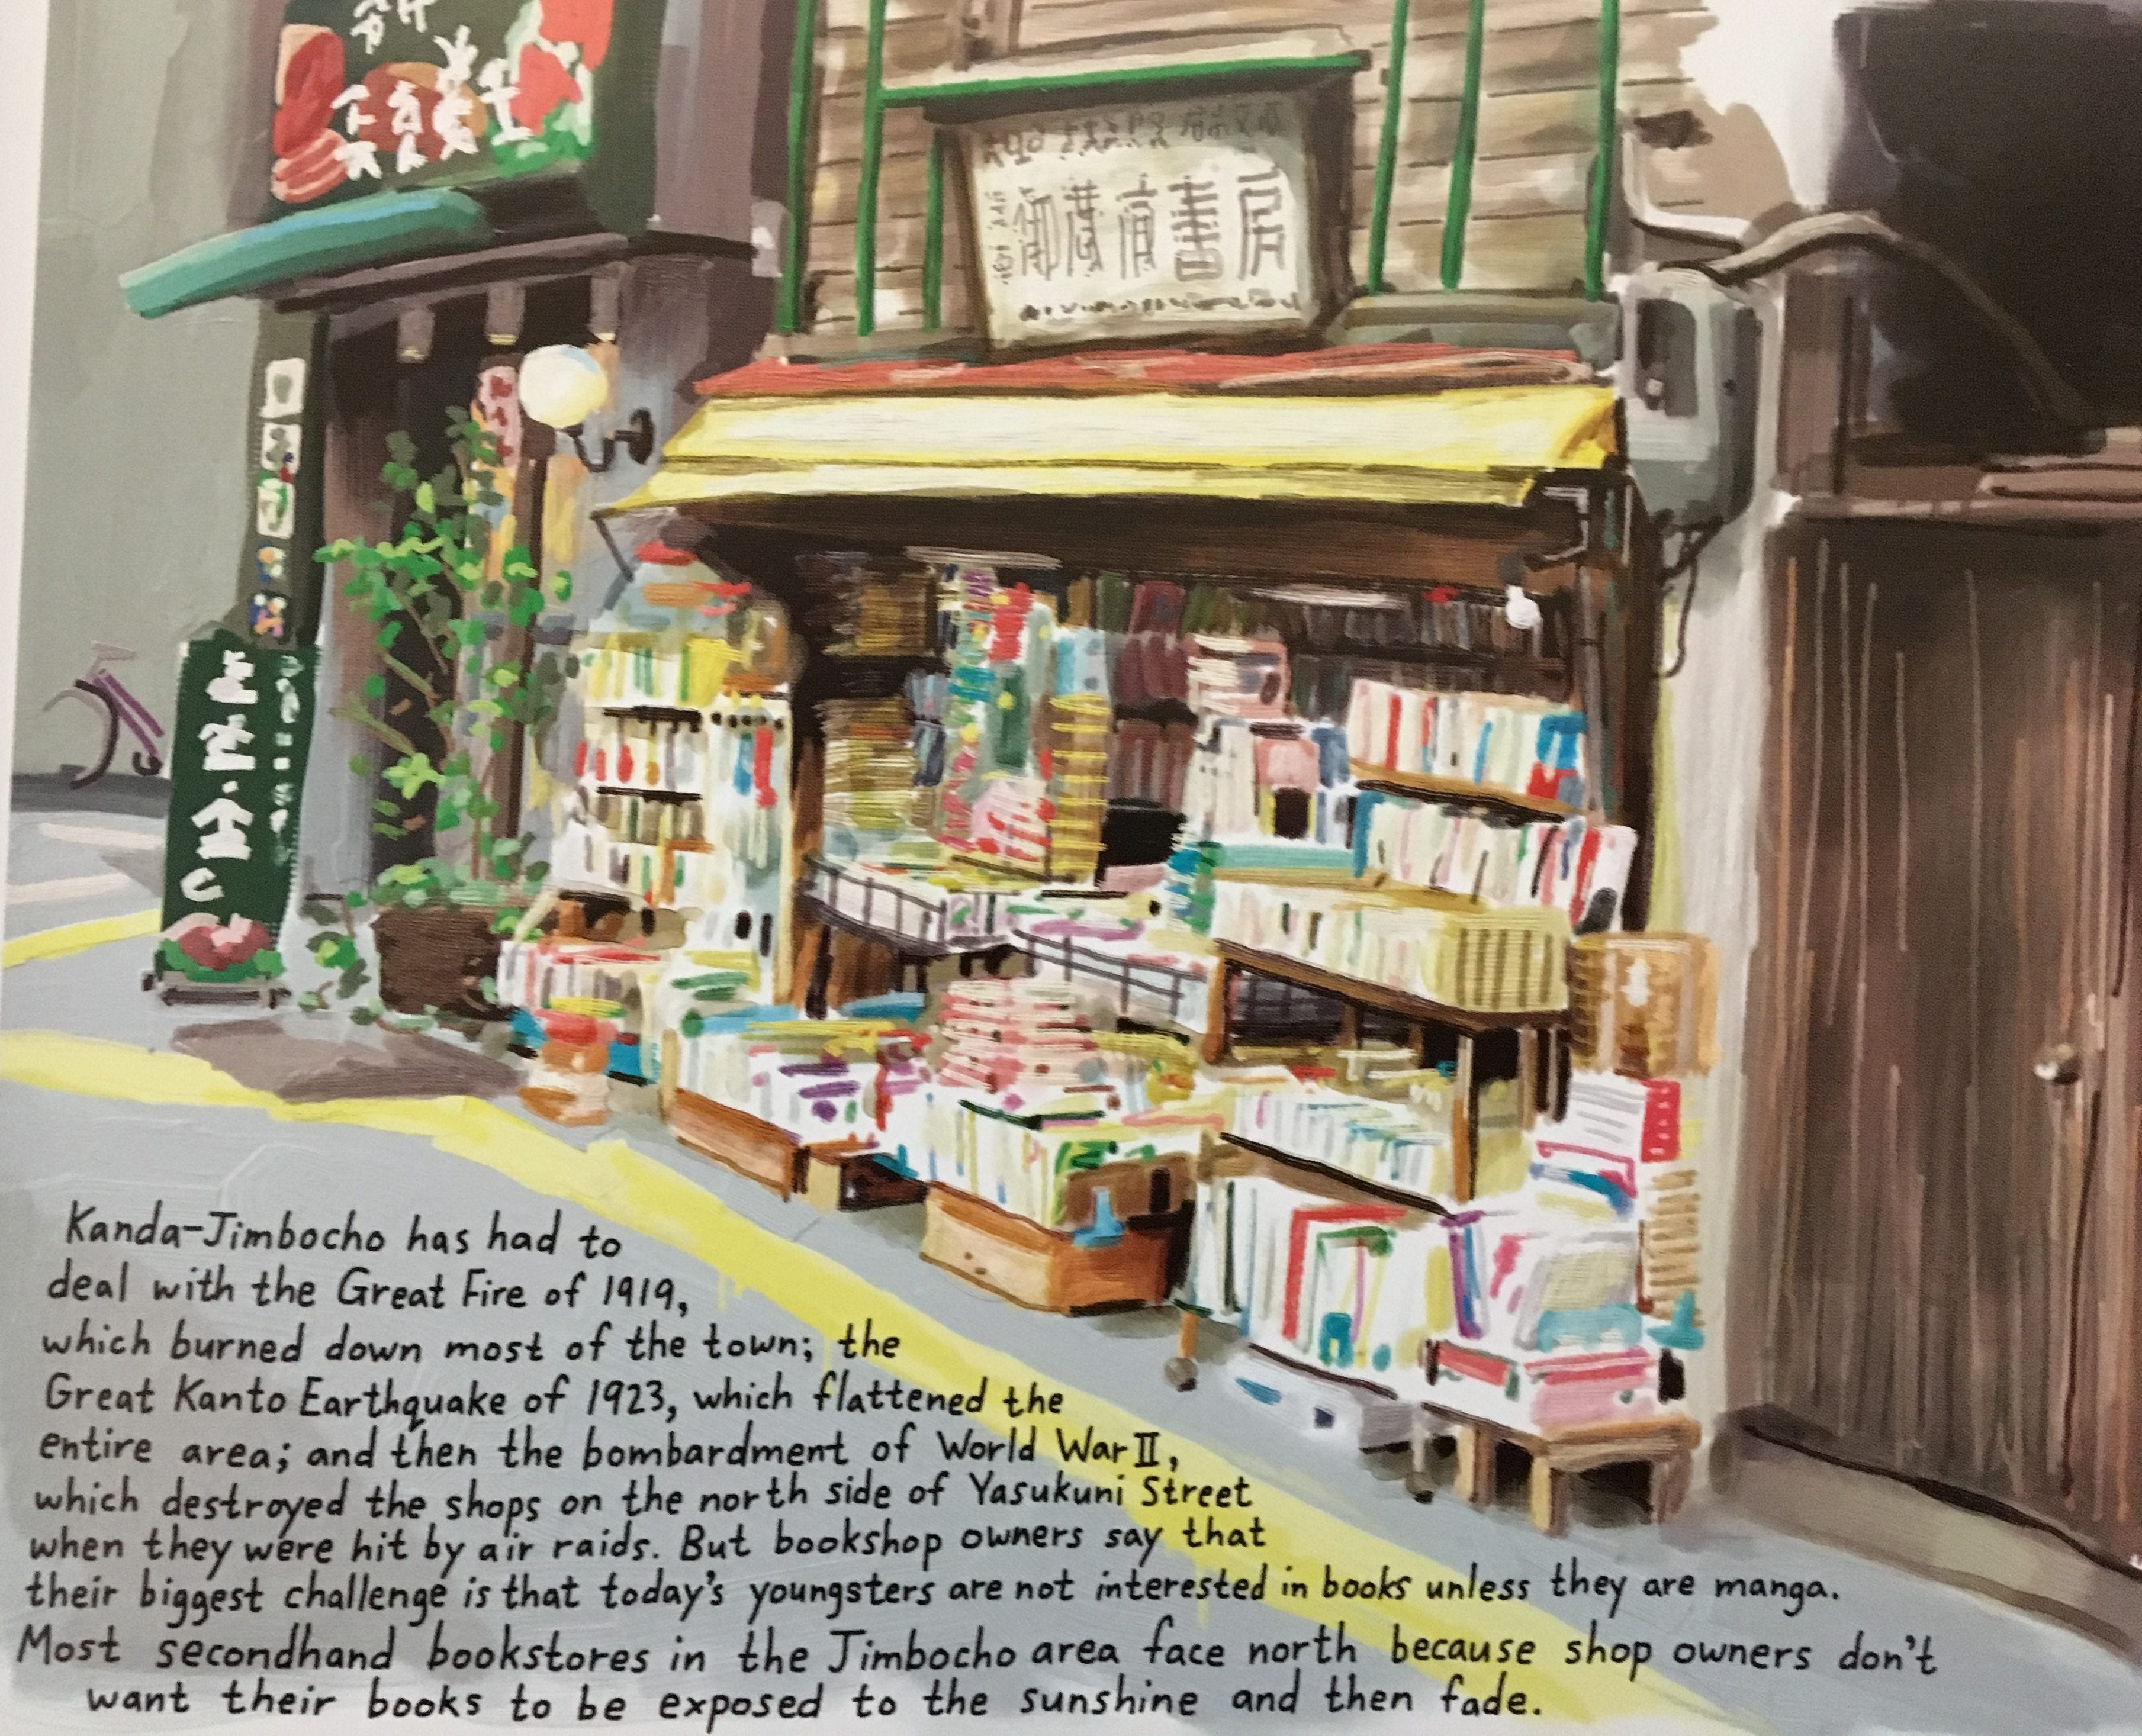 書房
Kanda-Jimbocho has had to
deal with the Great Fire of 1919,
which burned down most of the town; the
Great Kanto Earthquake of 1923, which flattened the
entire area; and then the bombardment of World War II,
which destroyed the shops on the north side of Yasukuni Street
when they were hit by air raids. But bookshop owners say that
their biggest challenge is that today's youngsters are not interested in books unless they are manga.
Most secondhand bookstores in the Jimbocho area face north because shop owners don't
want their books to be exposed to the sunshine and then fade.